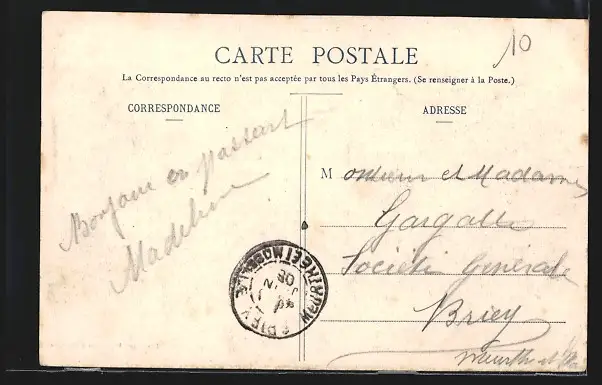 10
CARTE POSTALE
La Correspondance au recto n'est pas acceptée par tous les Pays Étrangers. (Se renseigner à la Poste.)
CORRESPONDANCE
Bonjour en passant
Madeleine
ADRESSE
Monsieur et Madame
Gargalle
Société Générale
Briey
Meurthe et
BRIEY
MEURTHE ET MOSELLE